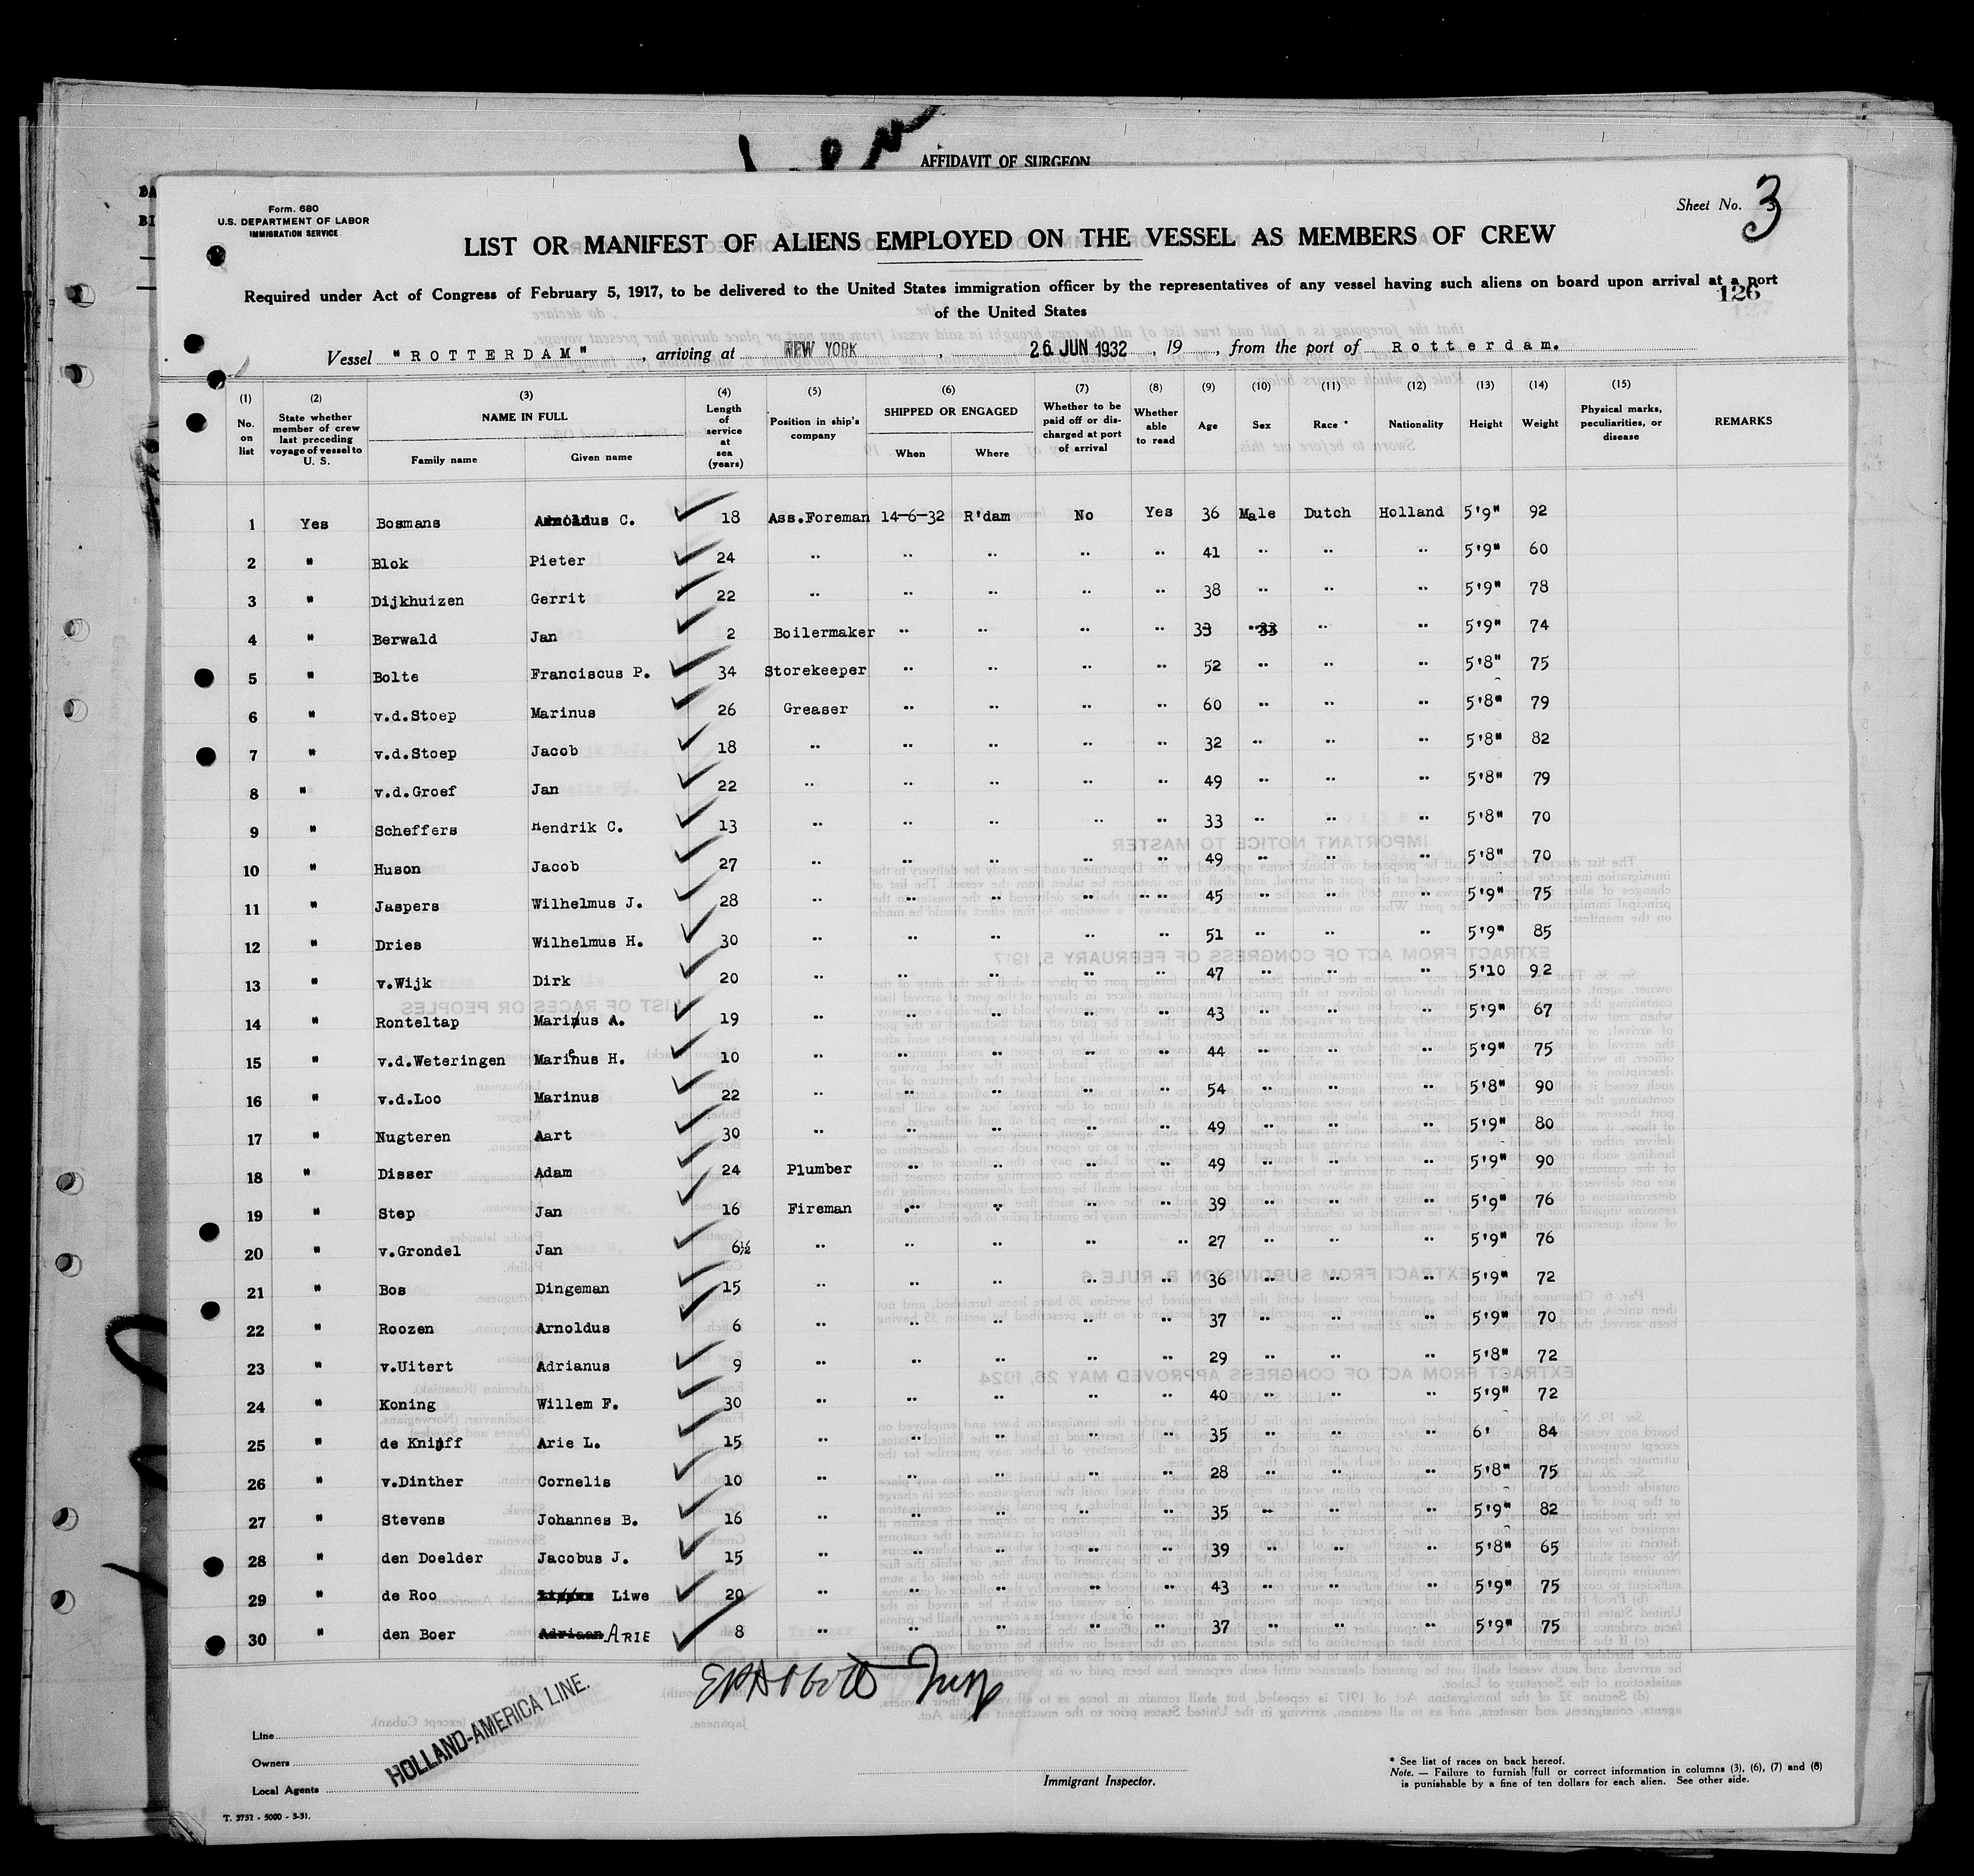 AFFIDAVIT OF SURGEON
Form. 680
U.S. DEPARTMENT OF LABOR
IMMIGRATION SERVICE
Sheet No. 3
LIST OR MANIFEST OF ALIENS EMPLOYED ON THE VESSEL AS MEMBERS OF CREW
Required under Act of Congress of February 5, 1917, to be delivered to the United States immigration officer by the representatives of any vessel having such aliens on board upon arrival at a port
of the United States
126
Vessel "ROTTERDAM", arriving at NEW YORK, 26 JUN 1932, 19 , from the port of Rotterdam.
(1) No. on list (2) State whether member of crew last preceding voyage of vessel to U. S. (3) NAME IN FULL Family name Given name (4) Length of service at sea (years) (5) Position in ship's company (6) SHIPPED OR ENGAGED When Where (7) Whether to be paid off or discharged at port of arrival (8) Whether able to read (9) Age (10) Sex (11) Race * (12) Nationality (13) Height (14) Weight (15) Physical marks, peculiarities, or disease REMARKS
1 Yes Bosmans Arnoldus C. 18 Ass.Foreman 14-6-32 R'dam No Yes 36 Male Dutch Holland 5'9" 92
2 " Blok Pieter 24 " " " " " 41 " " " 5'9" 60
3 " Dijkhuizen Gerrit 22 " " " " " 38 " " " 5'9" 78
4 " Berwald Jan 2 Boilermaker " " " " 33 " " " 5'9" 74
5 " Bolte Franciscus P. 34 Storekeeper " " " " 52 " " " 5'8" 75
6 " v.d.Stoep Marinus 26 Greaser " " " " 60 " " " 5'8" 79
7 " v.d.Stoep Jacob 18 " " " " " 32 " " " 5'8" 82
8 " v.d.Groef Jan 22 " " " " " 49 " " " 5'8" 79
9 " Scheffers Hendrik C. 13 " " " " " 33 " " " 5'8" 70
10 " Huson Jacob 27 " " " " " 49 " " " 5'8" 70
11 " Jaspers Wilhelmus J. 28 " " " " " " 45 " " " 5'9" 75
12 " Dries Wilhelmus H. 30 " " " " " 51 " " " 5'9" 85
13 " v.Wijk Dirk 20 " " " " " 47 " " " 5'10 92
14 " Ronteltap Marinus A. 19 " " " " " 43 " " " 5'9" 67
15 " v.d.Weteringen Marinus H. 10 " " " " " 44 " " " 5'9" 75
16 " v.d.Loo Marinus 22 " " " " " 54 " " " 5'8" 90
17 " Nugteren Aart 30 " " " " " 49 " " " 5'9" 80
18 " Disser Adam 24 Plumber " " " " 49 " " " 5'9" 90
19 " Step Jan 16 Fireman " " " " 39 " " " 5'9" 76
20 " v.Grondel Jan 6½ " " " " " 27 " " " 5'9" 76
21 " Bos Dingeman 15 " " " " " 36 " " " 5'9" 72
22 " Roozen Arnoldus 6 " " " " " 37 " " " 5'9" 70
23 " v.Uitert Adrianus 9 " " " " " 29 " " " 5'8" 72
24 " Koning Willem F. 30 " " " " " 40 " " " 5'9" 72
25 " de Knijff Arie L. 15 " " " " " 35 " " " 6' 84
26 " v.Dinther Cornelis 10 " " " " " 28 " " " 5'8" 75
27 " Stevens Johannes B. 16 " " " " " 35 " " " 5'9" 82
28 " den Doelder Jacobus J. 15 " " " " " 39 " " " 5'8" 65
29 " de Roo Liwe 20 " " " " " 43 " " " 5'9" 75
30 " den Boer Adriaan ARIE 8 " " " " " 37 " " " 5'9" 75
HOLLAND-AMERICA LINE.
Line
Owners
Local Agents
Immigrant Inspector.
* See list of races on back hereof.
Note. — Failure to furnish full or correct information in columns (3), (6), (7) and (8)
is punishable by a fine of ten dollars for each alien. See other side.
T. 3732 - 5000 - 3-31.